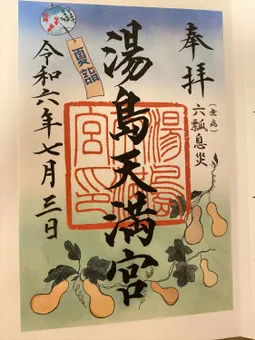 奉拝
(無病)
六瓢息災
湯島天満宮
夏詣
令和六年七月三日